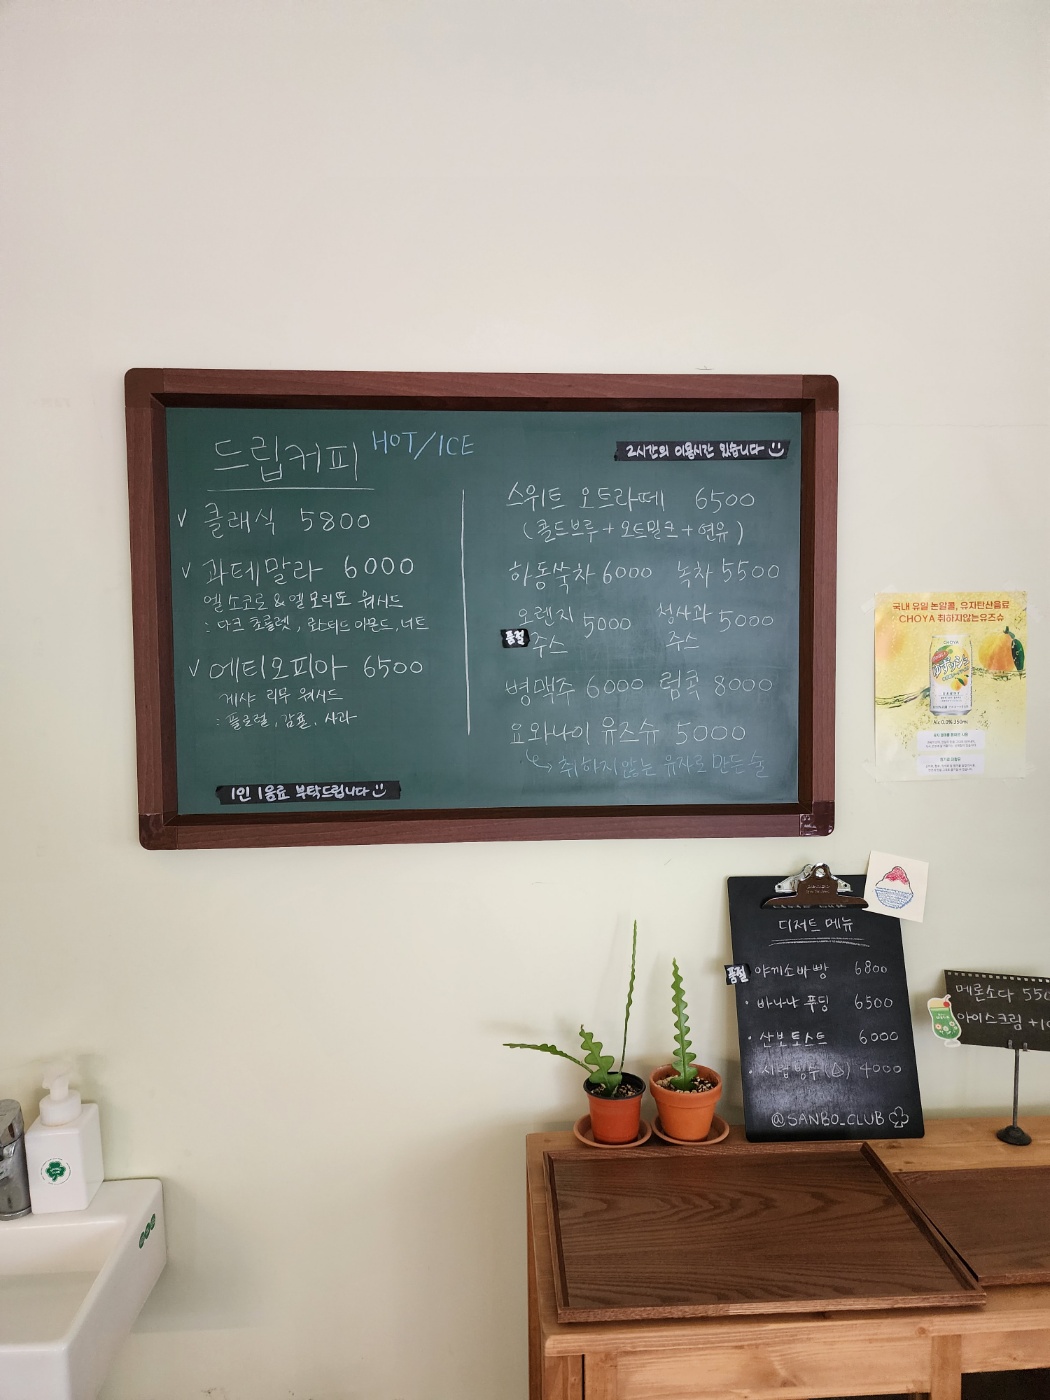 드립커피 HOT/ICE
✓ 클래식 5800
✓ 과테말라 6000
엘 소코로 & 엘 모리또 워시드
: 다크 초콜렛, 로스티드 아몬드, 너트
✓ 에티오피아 6500
게샤 리무 워시드
: 플로럴, 감귤, 사과
1인 1음료 부탁드립니다
2시간의 이용시간 있습니다
스위트 오트라떼 6500
(콜드브루 + 오트밀크 + 연유)
하동쑥차 6000 녹차 5500
오렌지 주스 5000 청사과 주스 5000
품절
병맥주 6000 럼콕 8000
요와나이 유즈슈 5000
↳ 취하지 않는 유자로 만든 술
국내 유일 논알콜, 유자탄산음료
CHOYA 취하지않는유즈슈
CHOYA
Alc 0.0% 350ml
디저트 메뉴
품절 야끼소바빵 6800
· 바나나 푸딩 6500
· 산보토스트 6000
· 시럽빙수(소) 4000
@SANBO_CLUB
메론소다 550
아이스크림 +10